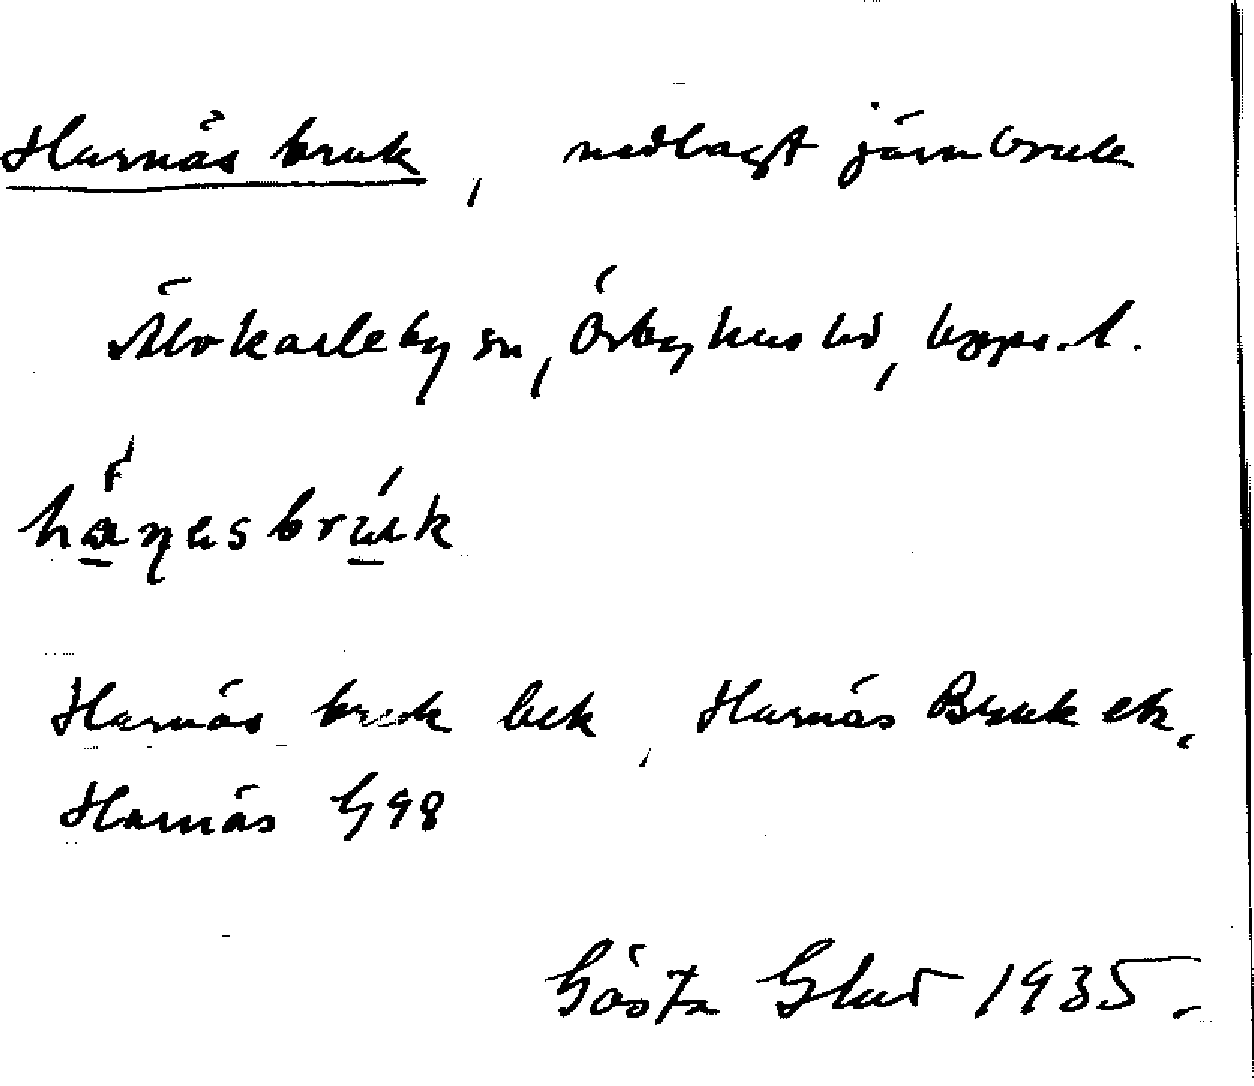 Harnäs bruk, nedlagt järnbruk
Älvkarleby sn, Örbyhus hd, Upps. l.
Harnäs bruk bek, Harnäs Bruk ek,
Harnäs G98
Gösta Glad 1935.